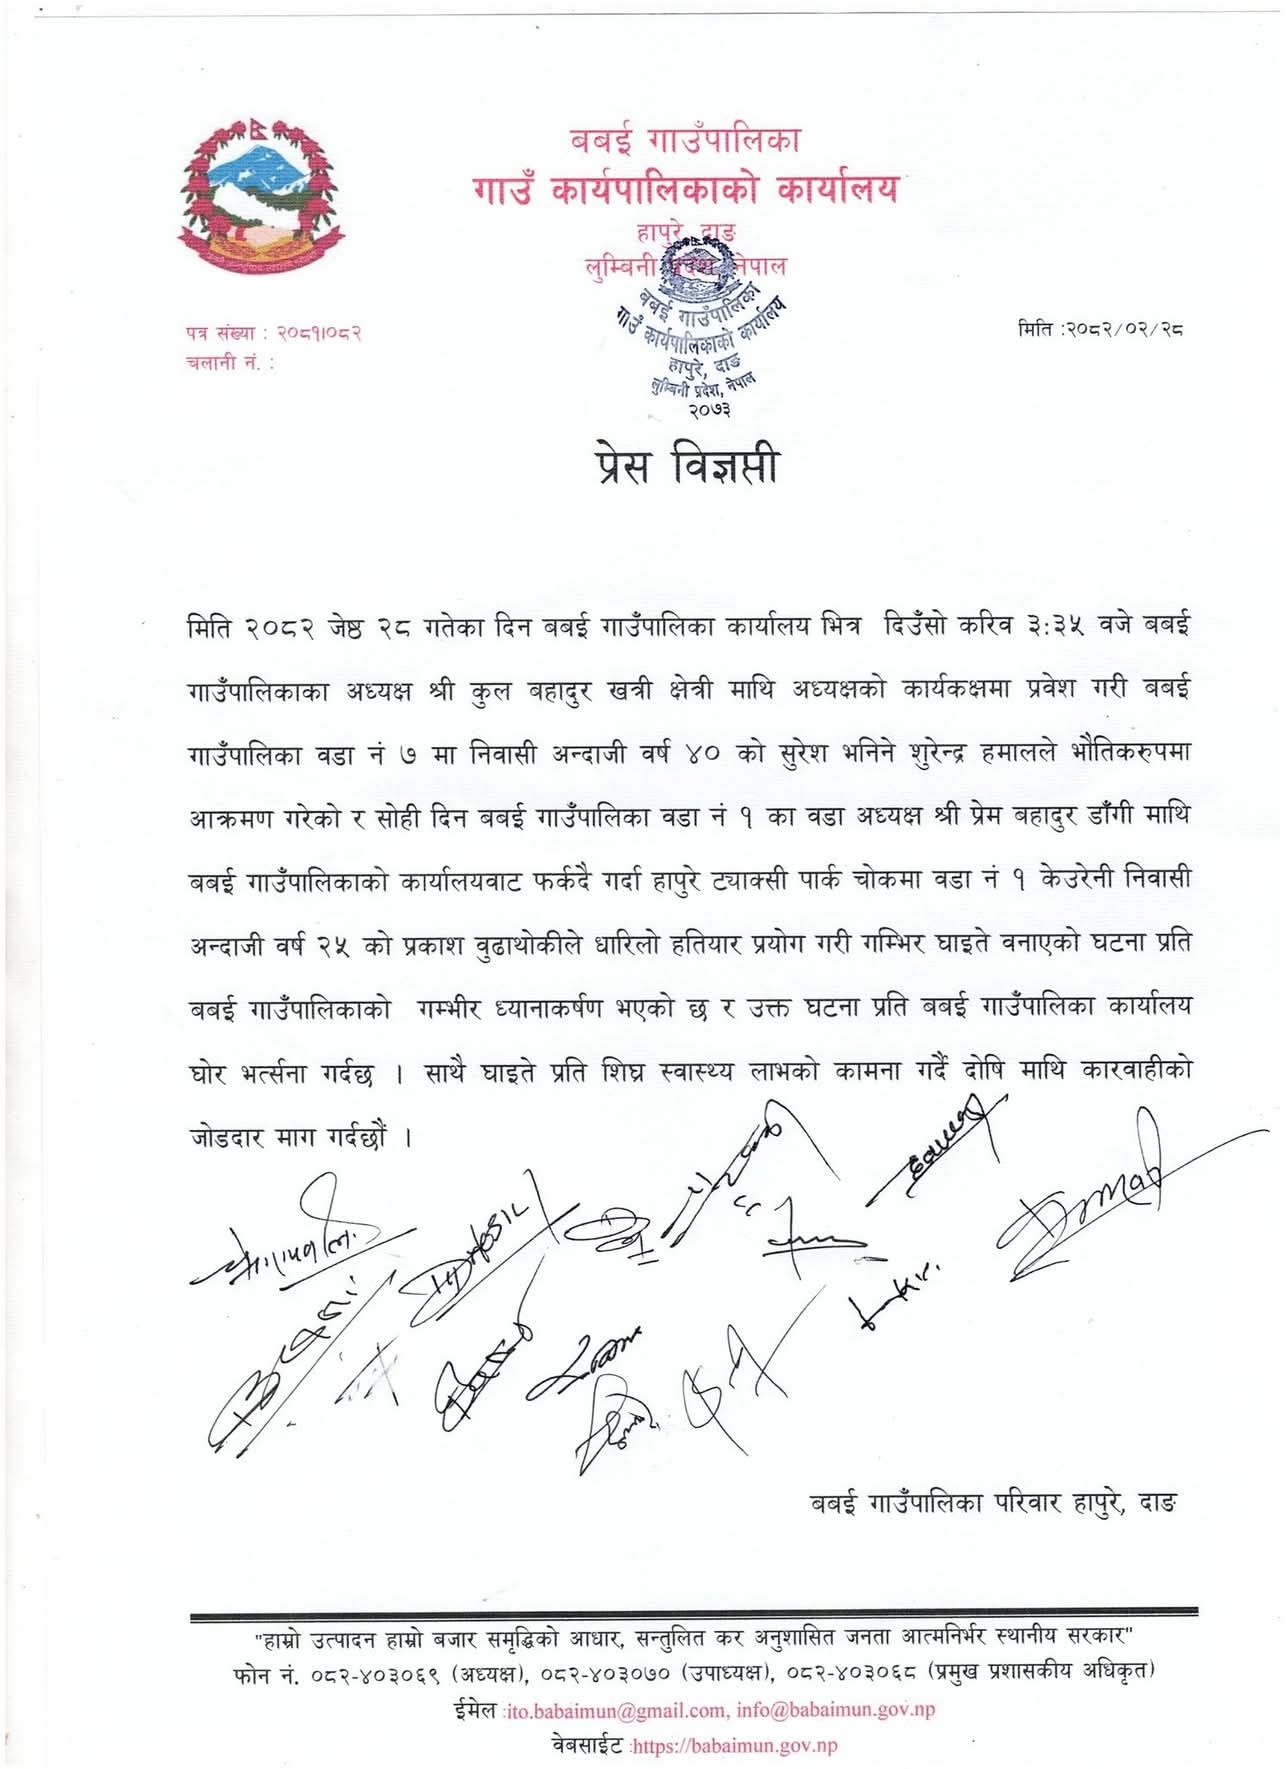 बबई गाउँपालिका
गाउँ कार्यपालिकाको कार्यालय
हापुरे, दाङ
लुम्बिनी प्रदेश, नेपाल
बबई गाउँपालिका
गाउँ कार्यपालिकाको कार्यालय
हापुरे, दाङ
लुम्बिनी प्रदेश, नेपाल
२०७३
पत्र संख्या : २०८१।०८२
मिति :२०८२/०२/२८
चलानी नं. :
प्रेस विज्ञप्ती
मिति २०८२ जेष्ठ २८ गतेका दिन बबई गाउँपालिका कार्यालय भित्र दिउँसो करिव ३:३५ वजे बबई
गाउँपालिकाका अध्यक्ष श्री कुल बहादुर खत्री क्षेत्री माथि अध्यक्षको कार्यकक्षमा प्रवेश गरी बबई
गाउँपालिका वडा नं ७ मा निवासी अन्दाजी वर्ष ४० को सुरेश भनिने शुरेन्द्र हमालले भौतिकरुपमा
आक्रमण गरेको र सोही दिन बबई गाउँपालिका वडा नं १ का वडा अध्यक्ष श्री प्रेम बहादुर डाँगी माथि
बबई गाउँपालिकाको कार्यालयवाट फर्कदै गर्दा हापुरे ट्याक्सी पार्क चोकमा वडा नं १ केउरेनी निवासी
अन्दाजी वर्ष २५ को प्रकाश वुढाथोकीले धारिलो हतियार प्रयोग गरी गम्भिर घाइते वनाएको घटना प्रति
बबई गाउँपालिकाको गम्भीर ध्यानाकर्षण भएको छ र उक्त घटना प्रति बबई गाउँपालिका कार्यालय
घोर भर्त्सना गर्दछ । साथै घाइते प्रति शिघ्र स्वास्थ्य लाभको कामना गर्दै दोषि माथि कारवाहीको
जोडदार माग गर्दछौं ।
बबई गाउँपालिका परिवार हापुरे, दाङ
"हाम्रो उत्पादन हाम्रो बजार समृद्धिको आधार, सन्तुलित कर अनुशासित जनता आत्मनिर्भर स्थानीय सरकार"
फोन नं. ०८२-४०३०६९ (अध्यक्ष), ०८२-४०३०७० (उपाध्यक्ष), ०८२-४०३०६८ (प्रमुख प्रशासकीय अधिकृत)
ईमेल :ito.babaimun@gmail.com, info@babaimun.gov.np
वेबसाईट :https://babaimun.gov.np